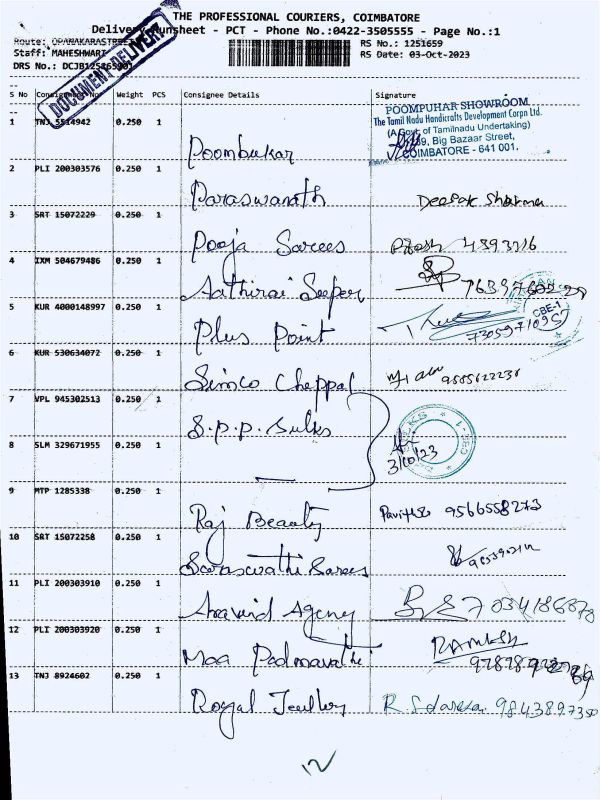 THE PROFESSIONAL COURIERS, COIMBATORE
Delivery Runsheet - PCT - Phone No.:0422-3505555 - Page No.:1
Route: OPANAKARASTREET
RS No.: 1251659
Staff: MAHESHWARI
RS Date: 03-Oct-2023
DRS No.:
DOCUMENT DELIVERY
S No Consignment No Weight PCS Consignee Details Signature
POOMPUHAR SHOWROOM
The Tamil Nadu Handicrafts Development Corpn Ltd.
(A Govt. of Tamilnadu Undertaking)
Big Bazaar Street,
COIMBATORE - 641 001.
1 TNJ 5514942 0.250 1 Poombukar
2 PLI 200303576 0.250 1 Paraswanath Deepak Sharma
3 SRT 15072229 0.250 1 Pooja Sarees
4 IXM 504679486 0.250 1 Aathirai Seeper
5 KUR 4000148997 0.250 1 Plus Point 7305971095
CBE-1
6 KUR 530634072 0.250 1 Simco Cheppal
7 VPL 945302513 0.250 1 S.p.p. Sulks
8 SLM 329671955 0.250 1 — 3/10/23
9 MTP 1285338 0.250 1 Raj Beauty 9566558273
10 SRT 15072258 0.250 1 Saraswathi Sarees
11 PLI 200303910 0.250 1 Aravind Agency 7034186878
12 PLI 200303920 0.250 1 Maa Padmavathi RAMESH
13 TNJ 8924602 0.250 1 Royal Jewllery 9843897350
12